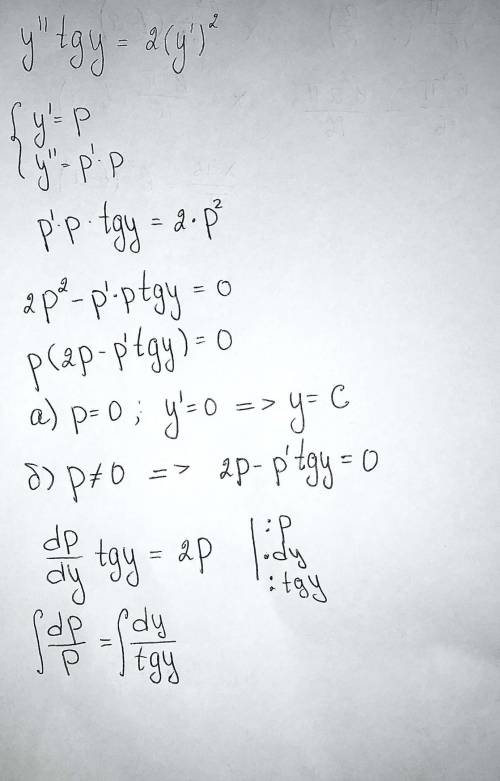 y'' tgy = 2(y')²
{ y' = p
y'' = p'·p
p'·p·tgy = 2·p²
2p² - p'·ptgy = 0
p(2p - p'tgy) = 0
а) p=0 ; y'=0 => y= C
б) p≠0 => 2p - p'tgy = 0
dp/dy tgy = 2p | :p
·dy
:tgy
∫dp/p = ∫dy/tgy